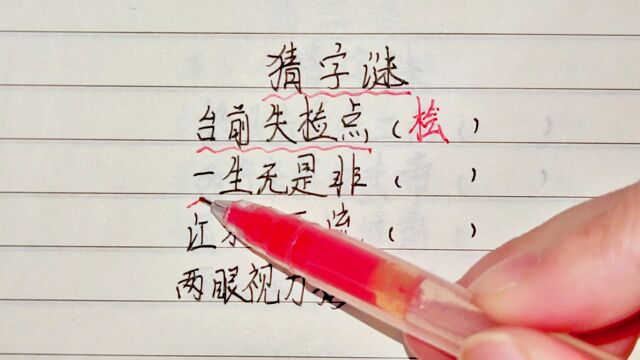 猜字谜
台前失检点（桧）
一生无是非（ ）
江（ ）
两眼视力